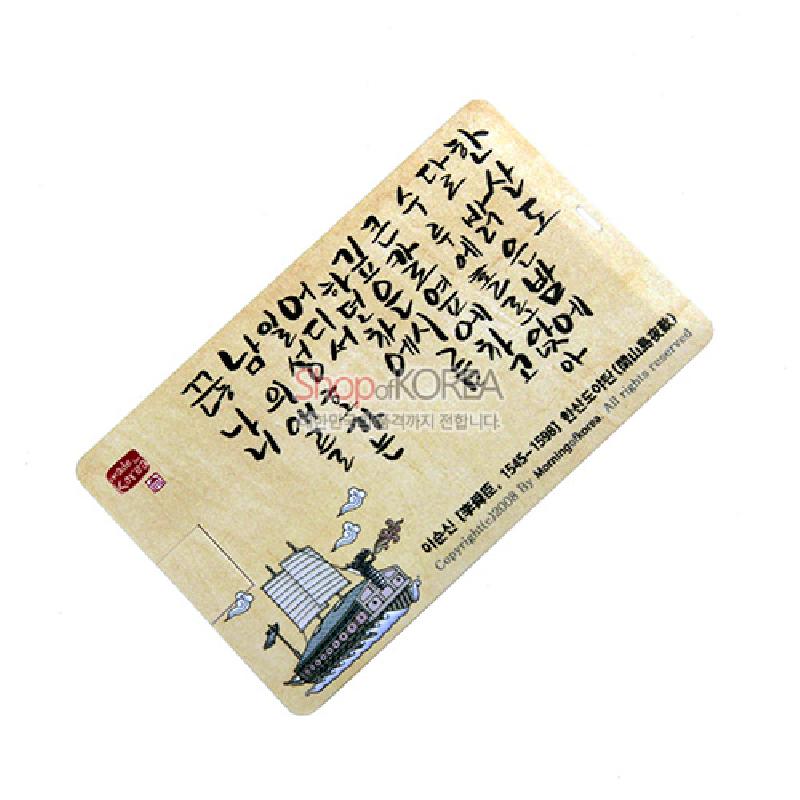 한산도
달 밝은 밤에
수루에 홀로 앉아
큰 칼 옆에 차고
깊은 시름
하던 차에
어디서
일성 호가는
남의 애를
끊나니
이순신 [李舜臣, 1545~1598] 한산도야탄(閑山島夜歎)
Copyright(c)2008 By Morningofkorea. All rights reserved
made in Korea
ShopofKOREA
대한민국의 품격까지 전합니다.